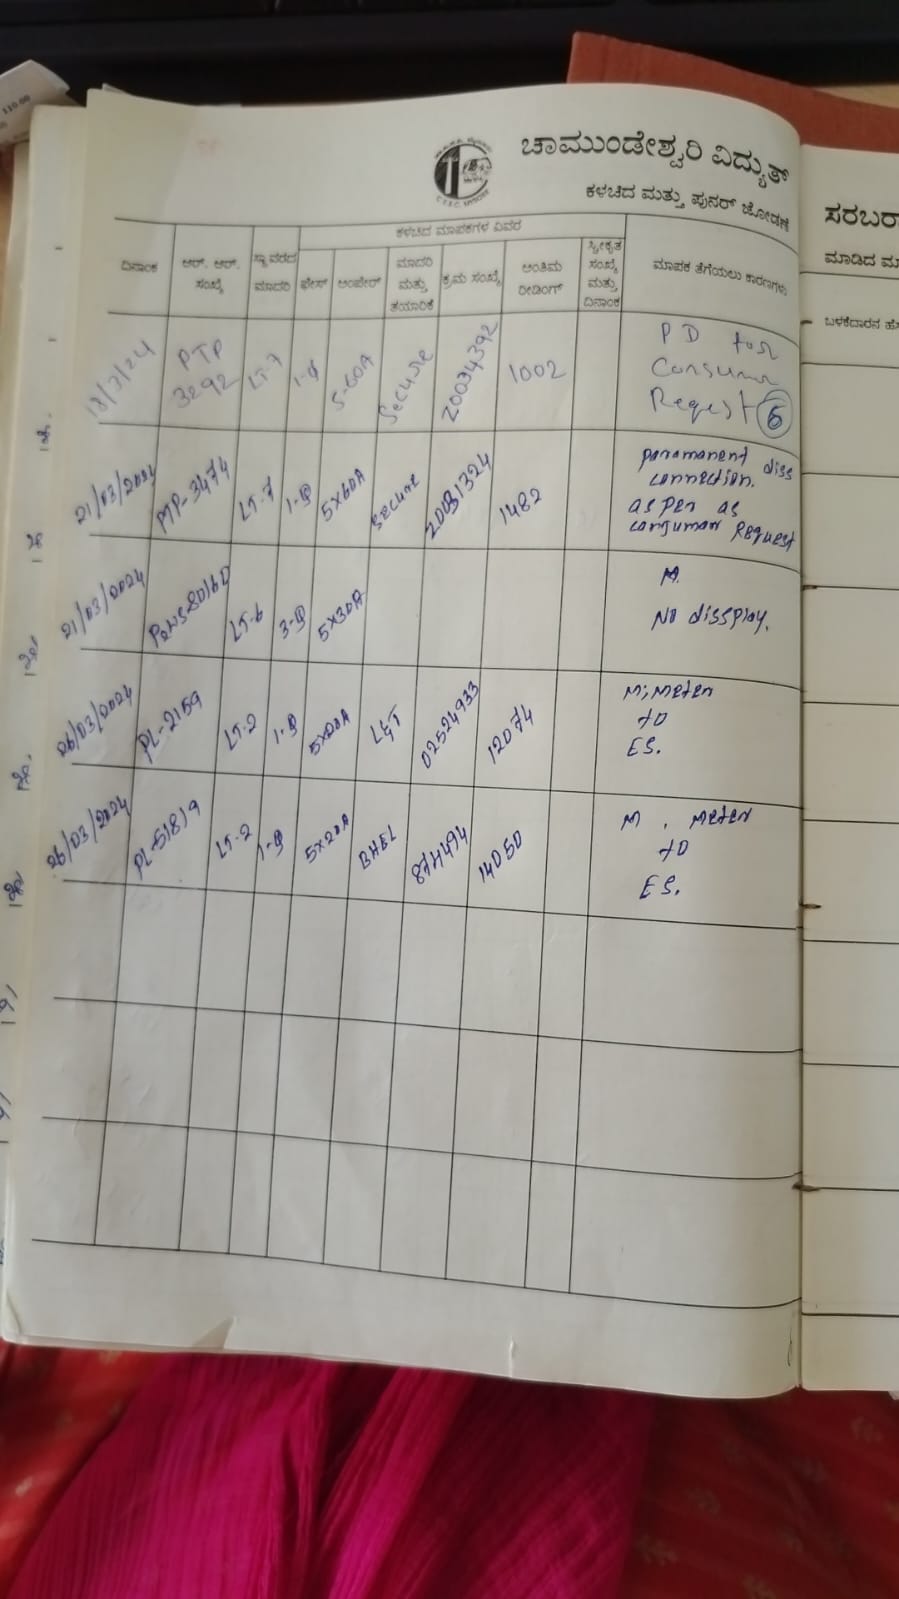 110.00
ಚಾಮುಂಡೇಶ್ವರಿ ವಿದ್ಯುತ್
ಕಳಚಿದ ಮತ್ತು ಪುನರ್ ಜೋಡಣೆ
ಸರಬರಾ
ಮಾಡಿದ ಮಾ
ಬಳಕೆದಾರನ ಹೆಸ
ಕಳಚಿದ ಮಾಪಕಗಳ ವಿವರ
ದಿನಾಂಕ
ಆರ್. ಆರ್. ಸಂಖ್ಯೆ
ಸ್ಥಾವರದ ಮಾದರಿ
ಫೇಸ್
ಅಂಪೇರ್
ಮಾದರಿ ಮತ್ತು ತಯಾರಿಕೆ
ಕ್ರಮ ಸಂಖ್ಯೆ
ಅಂತಿಮ ರೀಡಿಂಗ್
ಸ್ವೀಕೃತ ಸಂಖ್ಯೆ ಮತ್ತು ದಿನಾಂಕ
ಮಾಪಕ ತೆಗೆಯಲು ಕಾರಣಗಳು
18/3/24 PTP 3292 LT-7 1-φ 5-60A Secure 20034392 1002 PD for Consumer Reqest 6
21/03/2024 PTP-3474 LT-7 1-φ 5X60A Secure 1482 paramanent diss connection. as per as consumar Request
21/03/2024 LT-6 3-φ 5X30A M. No dissplay.
06/03/2024 PL-2159 LT-2 1-φ 5X20A L&T 02524933 12074 M; Meter to ES.
26/03/2024 PL-51819 LT-2 1-φ 5X20A BHEL 874494 14050 M, Meter to ES.